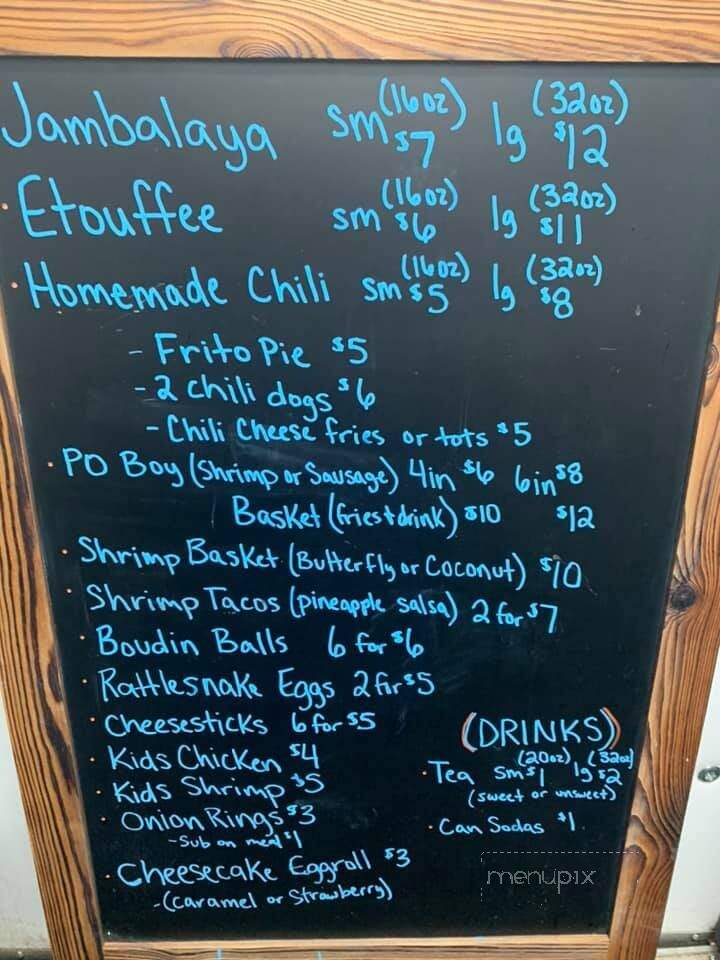 Jambalaya sm (16oz) $7 lg (32oz) $12
· Etouffee sm (16oz) $6 lg (32oz) $11
· Homemade Chili sm (16oz) $5 lg (32oz) $8
- Frito Pie $5
- 2 chili dogs $6
- Chili Cheese fries or tots $5
· PO Boy (Shrimp or Sausage) 4in $6 6in $8
Basket (fries + drink) $10 $12
· Shrimp Basket (Butterfly or Coconut) $10
· Shrimp Tacos (pineapple salsa) 2 for $7
· Boudin Balls 6 for $6
· Rattlesnake Eggs 2 for $5
· Cheesesticks 6 for $5
· Kids Chicken $4
· Kids Shrimp $5
· Onion Rings $3
- Sub on meal $1
· Cheesecake Eggroll $3
- (caramel or Strawberry)
(DRINKS)
· Tea sm (20oz) $1 lg (32oz) $2
(sweet or unsweet)
· Can Sodas $1
menupix